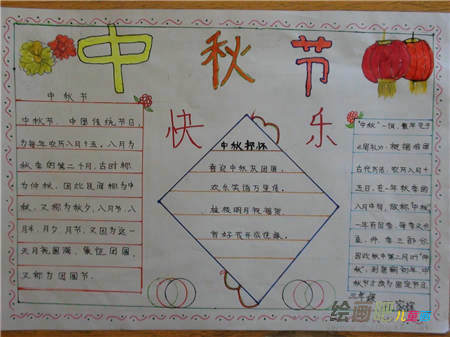 中秋节
快乐
中秋节
中秋节，中国传统节日，
为每年农历八月十五，八月为
秋季的第二个月，古时称
为仲秋，因此民间称为中
秋，又称为秋夕，八月节，八
月半，月夕，月节，又因为这一
天月亮圆满，象征团圆，
又称为团圆节。
中秋
喜迎中秋庆团圆，
欢乐笑语万里传，
明月
"中秋"一词，最早见于
古代历法，农历八月十
五日，在一年秋季的
八月中旬，故称"中秋"
一年有四季，每季又分
孟、仲、季三部分，
因此秋中第二月叶"仲
秋"，到唐朝初年，中秋
节才成为固定节日
绘画
儿童